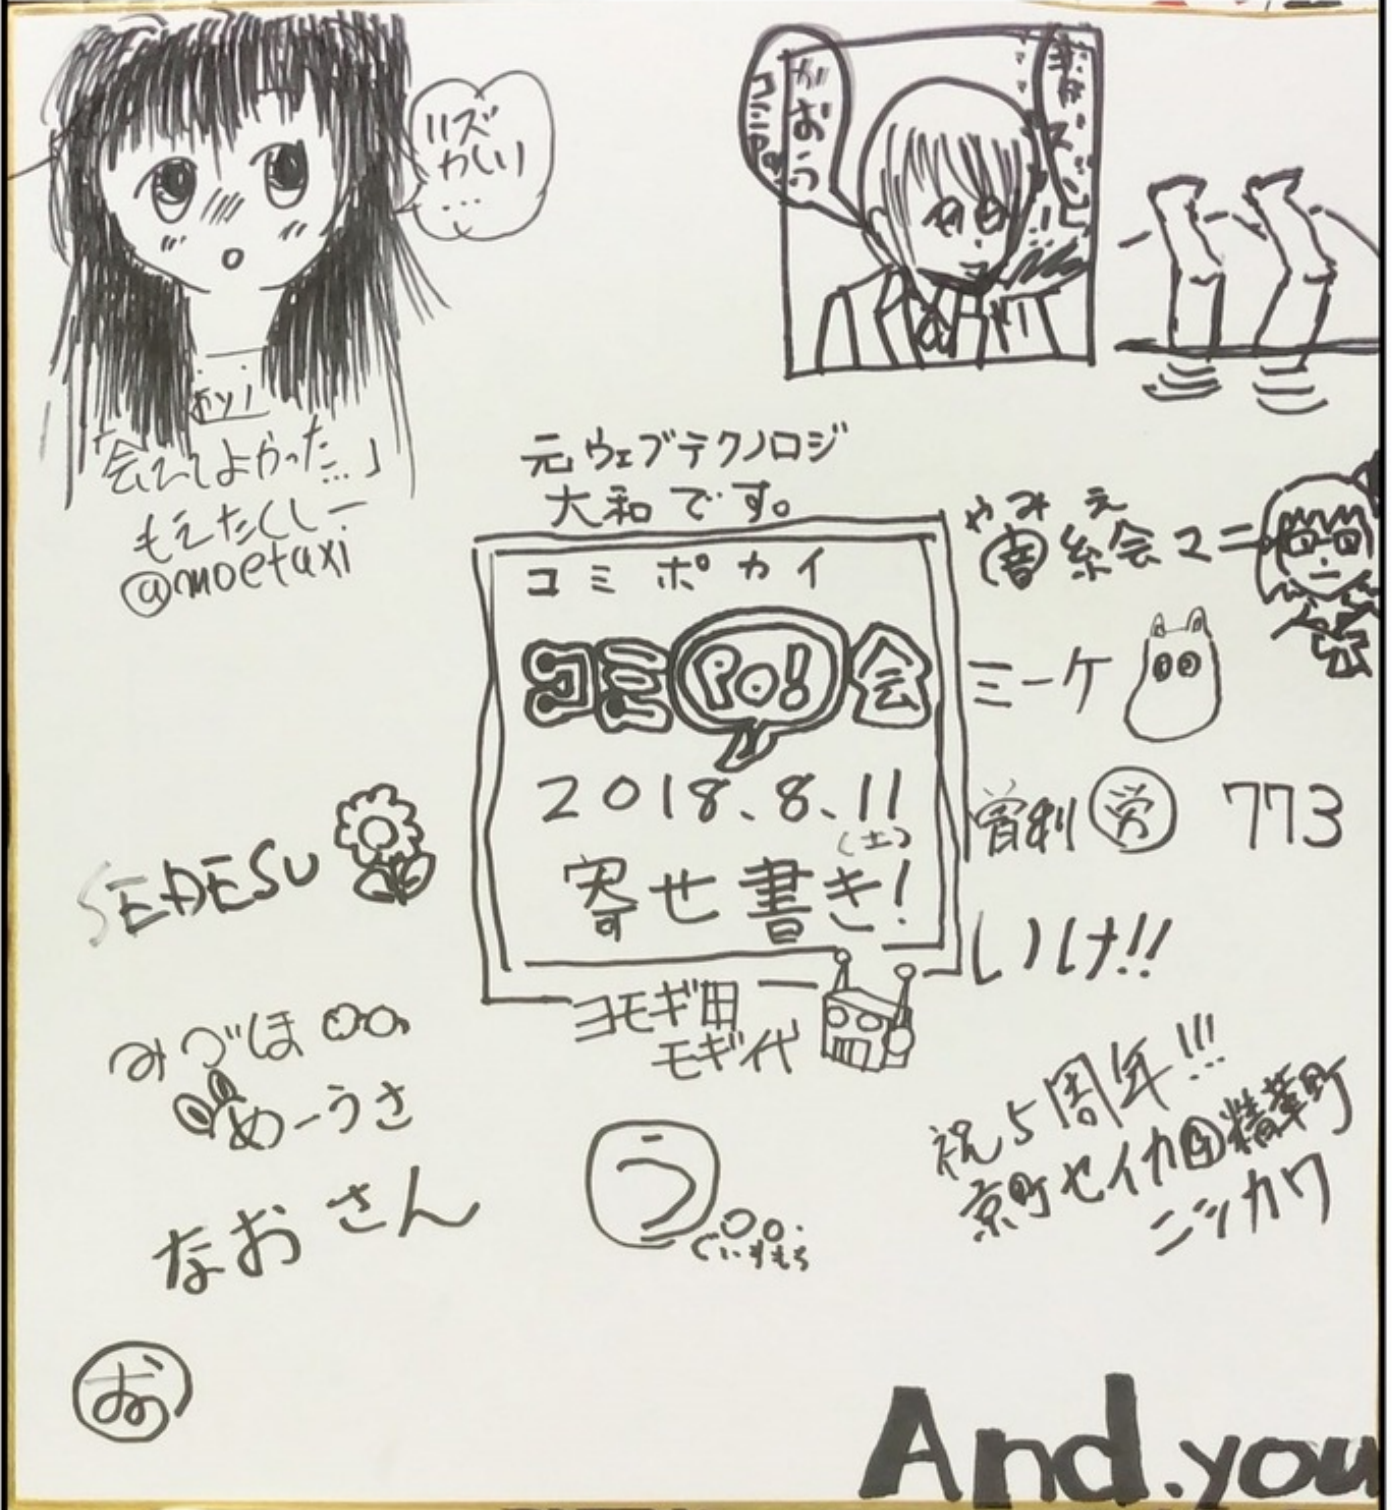 リズ
わしり
...
がおう
コミPo
「会えてよかった...」
もえたくしー
@moetaxi
元ウェブテクノロジ
大和です。
コミポカイ
コミPo!会
2018.8.11
(土)
寄せ書き!
やみえ
闇絵会マニ
ミーケ
曽利 労 773
SEDESU
いけ!!
ヨモギ田
モギ代
みづほ
めーうさ
なおさん
う
ぐぃすもち
祝5周年!!!
京町セイカ@精華町
ニシカワ
お
And.you